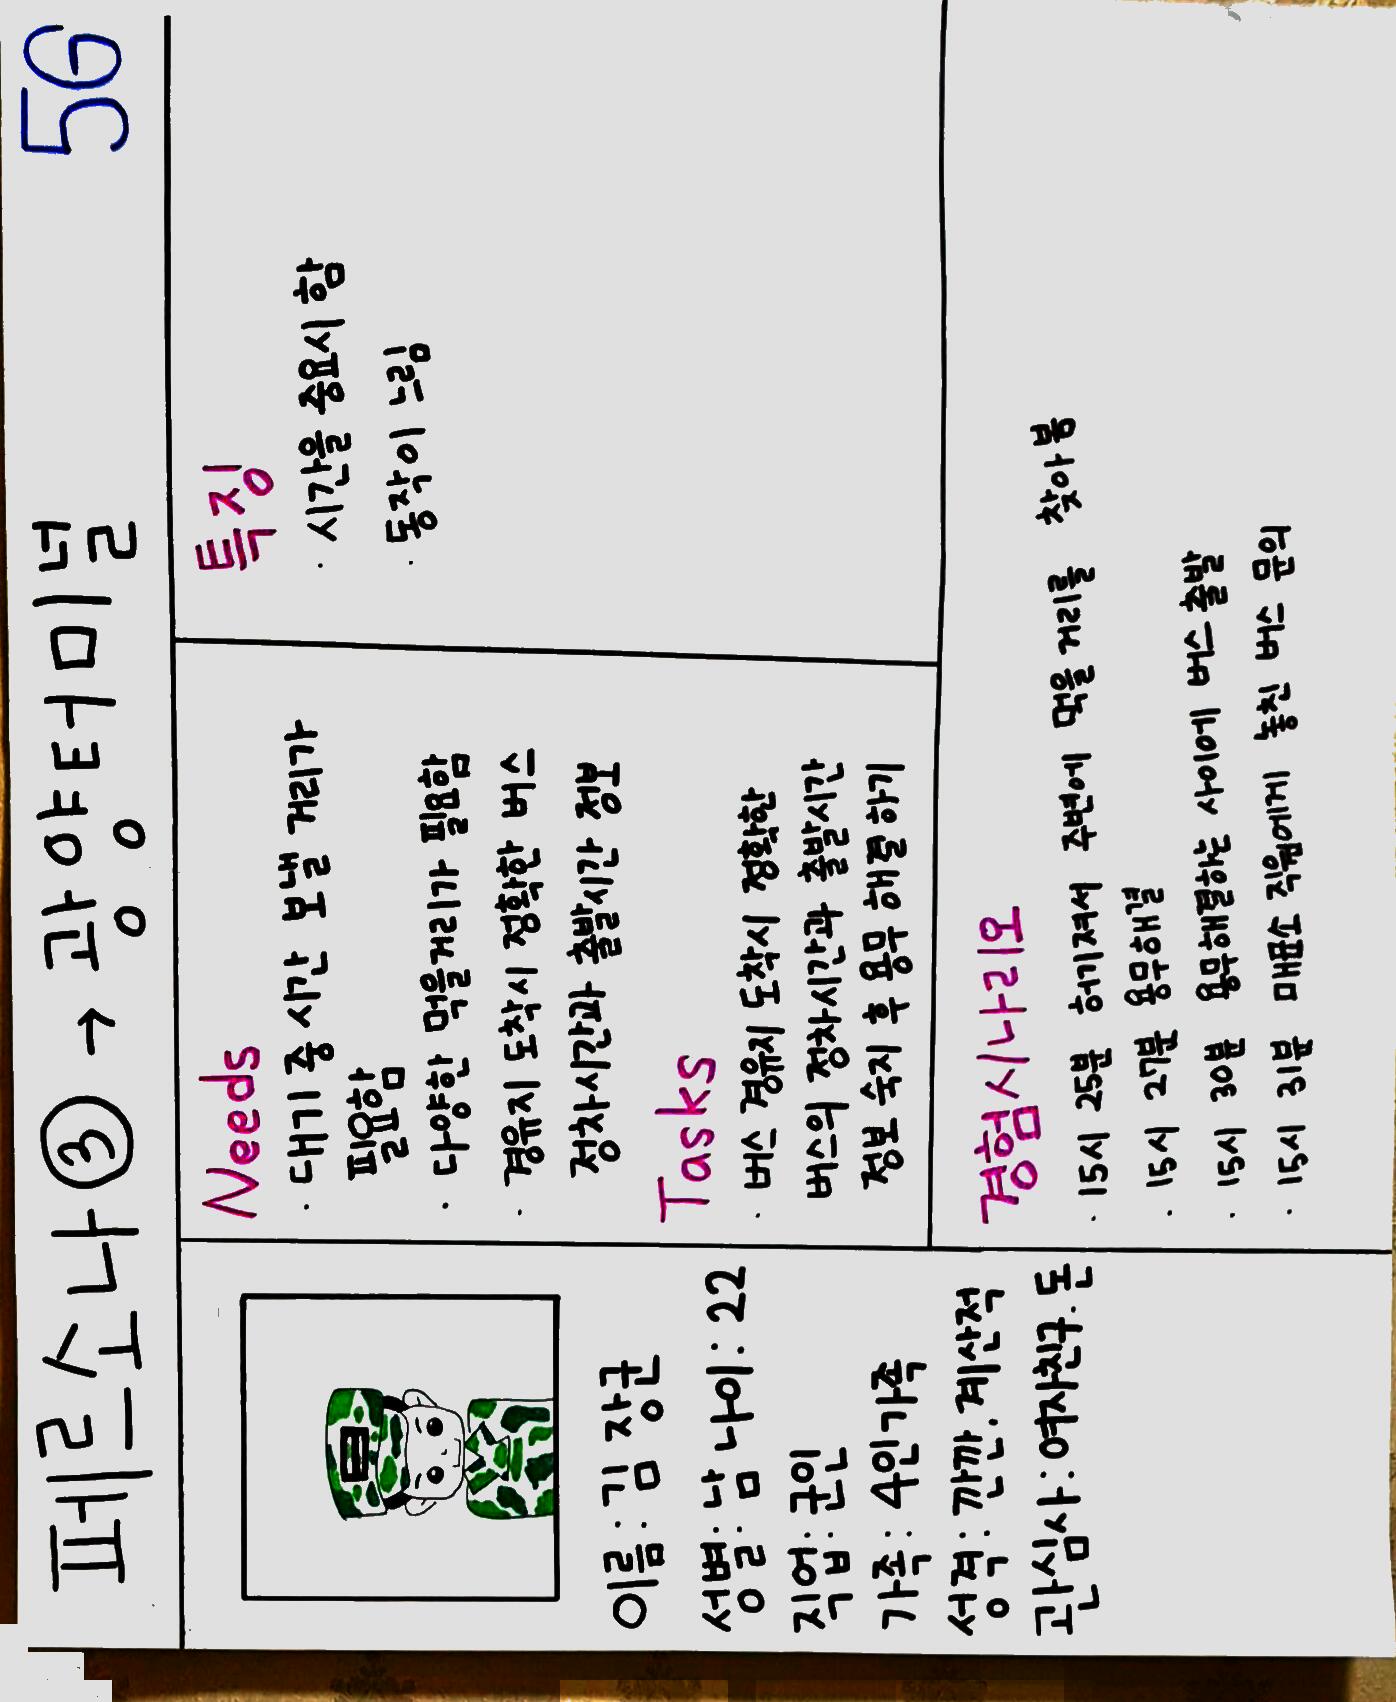 페르소나 ③ → 광양터미널
5G
이름 : 김 장군
성별 : 남 나이 : 22
직업 : 군인
가족 : 4인가족
성격 : 깐깐, 계산적
관심사 : 여자친구. 돈
Needs
· 대기 중 시간 보낼 거리가
필요함
· 다양한 먹을거리가 필요함
· 경유지 도착시 정확한 버스
정차시간과 출발시간 정보
Tasks
· 버스 경유지 도착시 정확한
버스의 정차시간과 출발시간
정보 숙지 후 용무 해결하기
특징
· 시간을 중요시 함
· 동작이 느림
경험시나리오
· 15시 25분 허기져서 주변에 먹을 거리를 찾아봄
· 15시 27분 용무해결
· 15시 30분 용무해결하는 사이에 버스 출발
· 15시 31분 매표소 직원에게 놓친 버스 문의